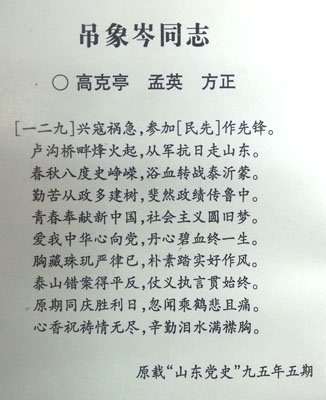 吊象岑同志
○ 高克亭 孟英 方正
[一二九]兴寇祸急,参加[民先]作先锋。
卢沟桥畔烽火起,从军抗日走山东。
春秋八度史峥嵘,浴血转战泰沂蒙。
勤苦从政多建树,斐然政绩传鲁中。
青春奉献新中国,社会主义圆旧梦。
爱我中华心向党,丹心碧血终一生。
胸藏珠玑严律已,朴素踏实好作风。
泰山错案得平反,仗义执言贯始终。
原期同庆胜利日,忽闻乘鹤悲且痛。
心香祝祷情无尽,辛勤泪水满襟胸。
原载“山东党史”九五年五期